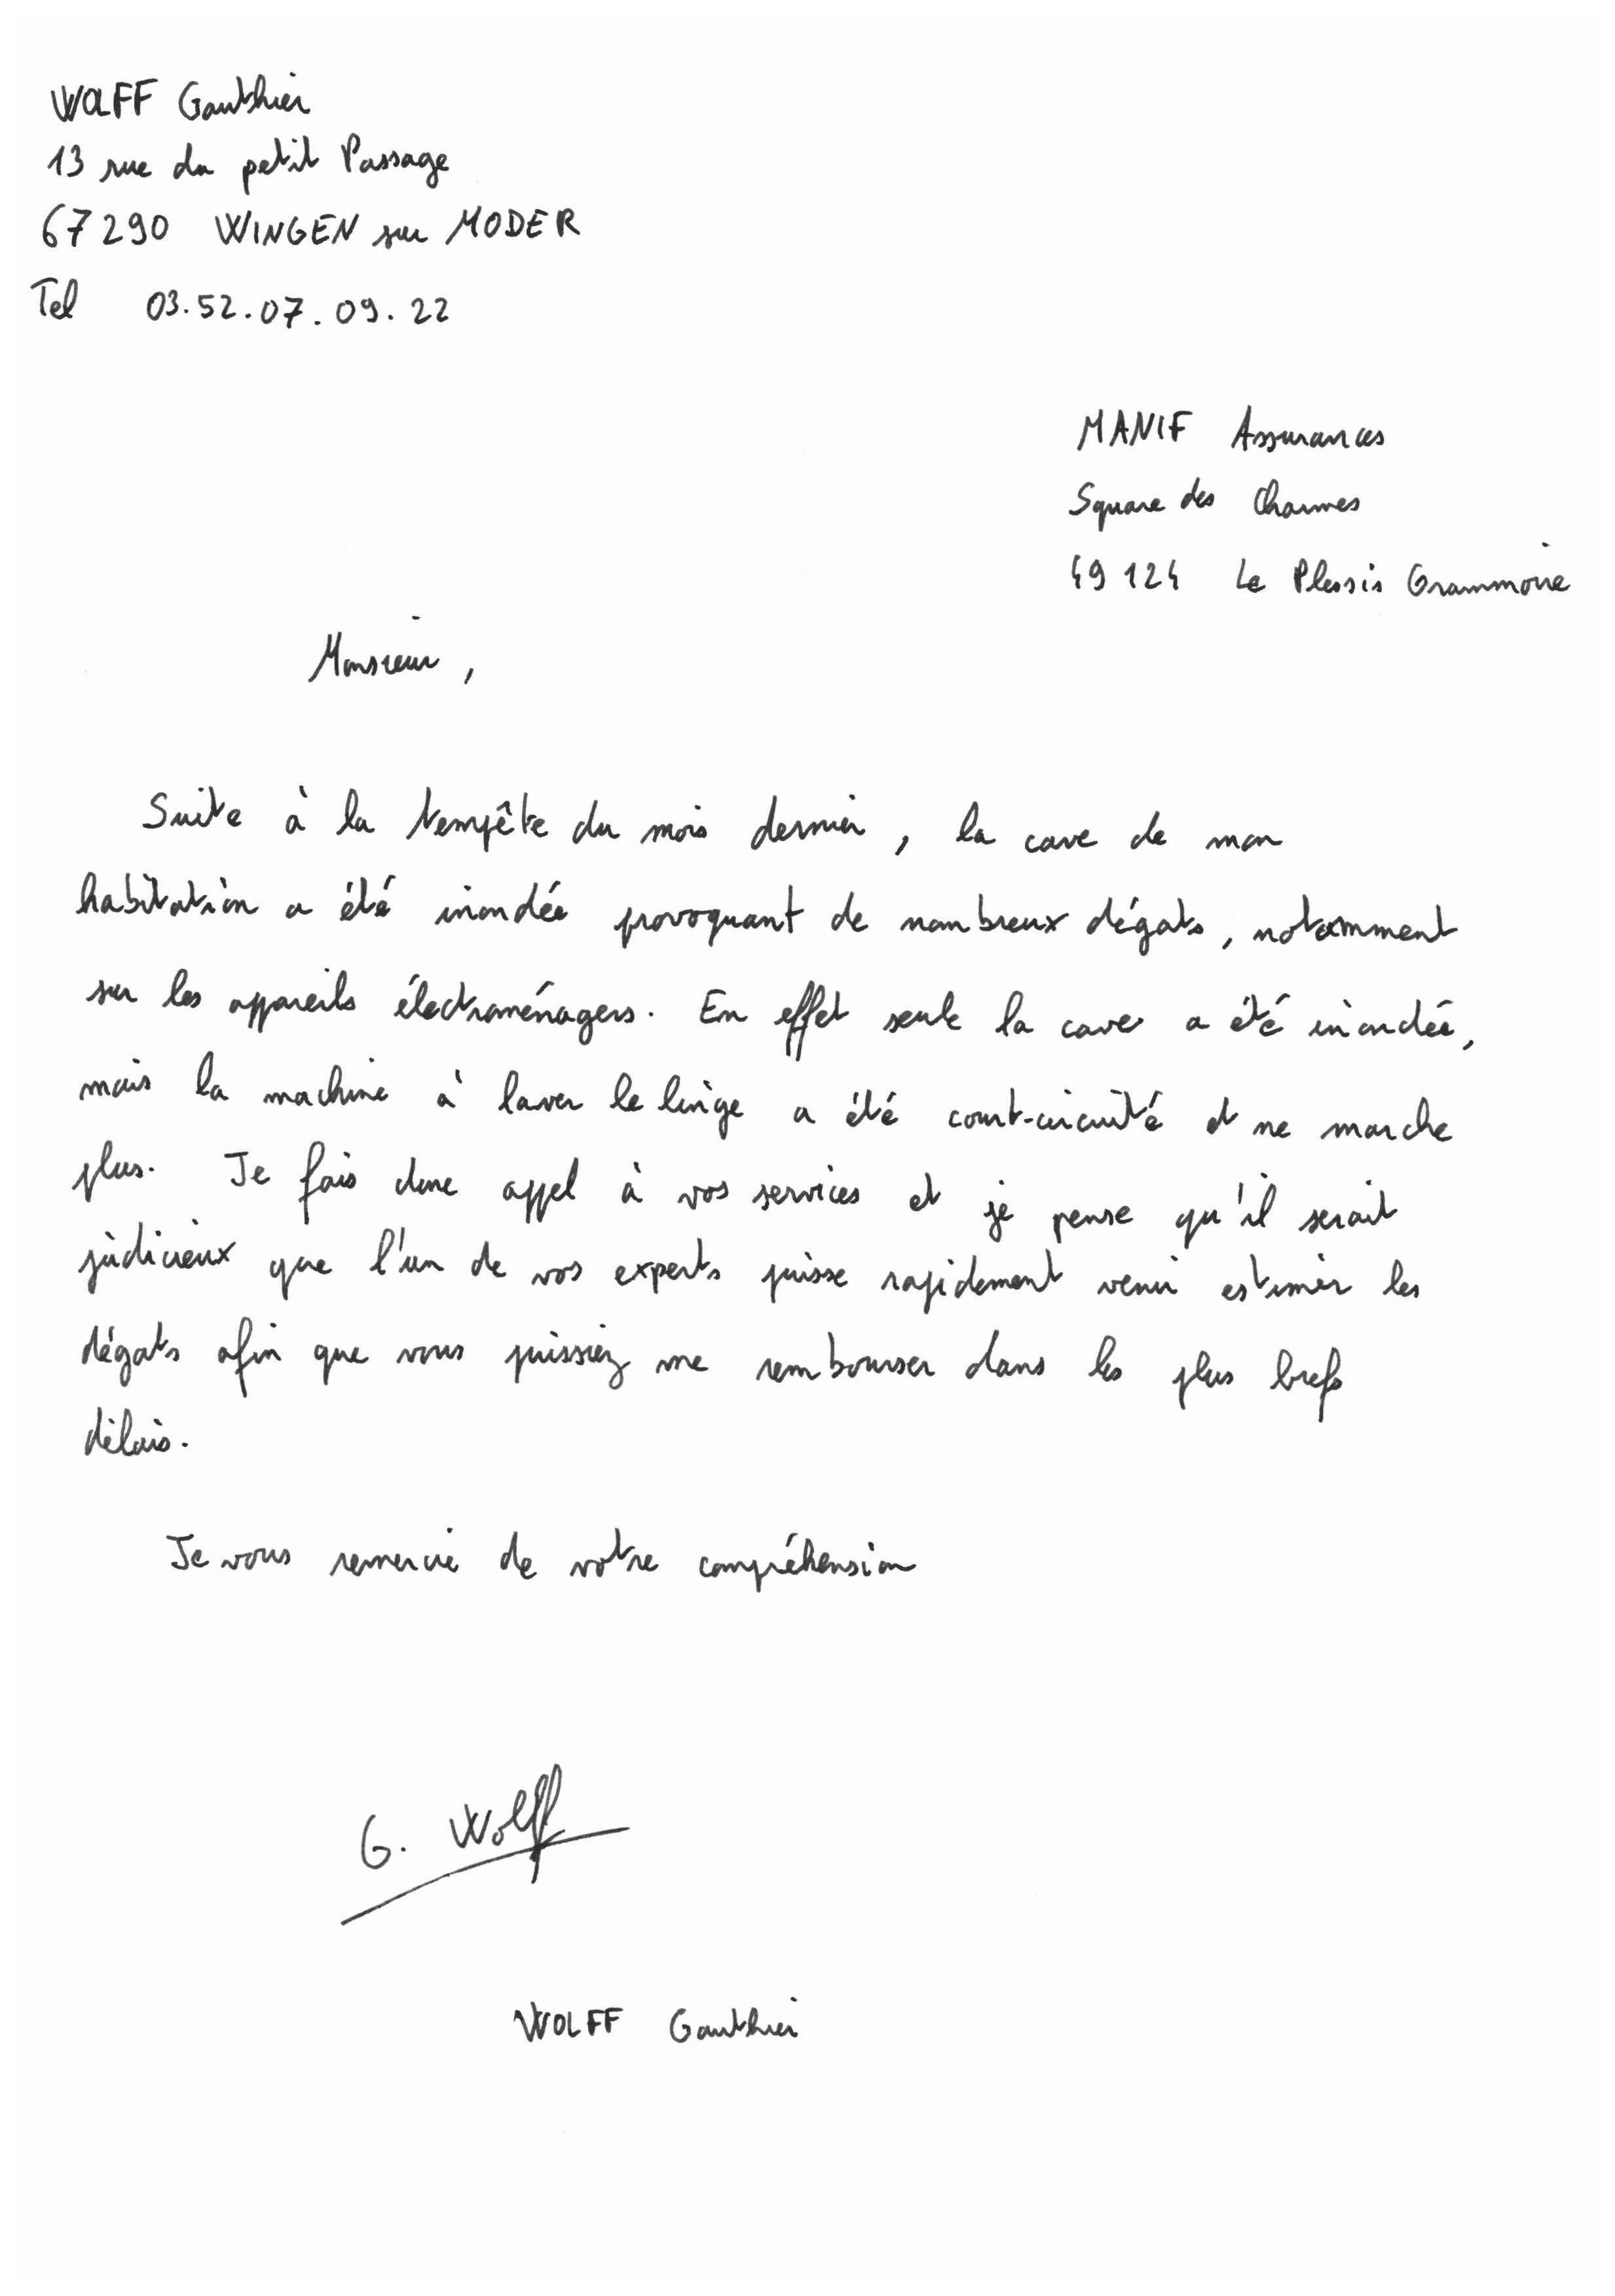 WOLFF Gauthier
13 rue du petit Passage
67290 WINGEN sur MODER
Tel 03.52.07.09.22
MANIF Assurances
Square des Charmes
49124 Le Plessis Grammoire
Monsieur,
Suite à la tempête du mois dernier, la cave de mon
habitation a été inondée provoquant de nombreux dégats, notamment
sur les appareils électroménagers. En effet seule la cave a été inondée,
mais la machine à laver le linge a été court-circuité et ne marche
plus. Je fais donc appel à vos services et je pense qu'il serait
judicieux que l'un de vos experts puisse rapidement venir estimer les
dégats afin que vous puissiez me rembourser dans les plus brefs
délais.
Je vous remercie de votre compréhension
G. Wolff
WOLFF Gauthier